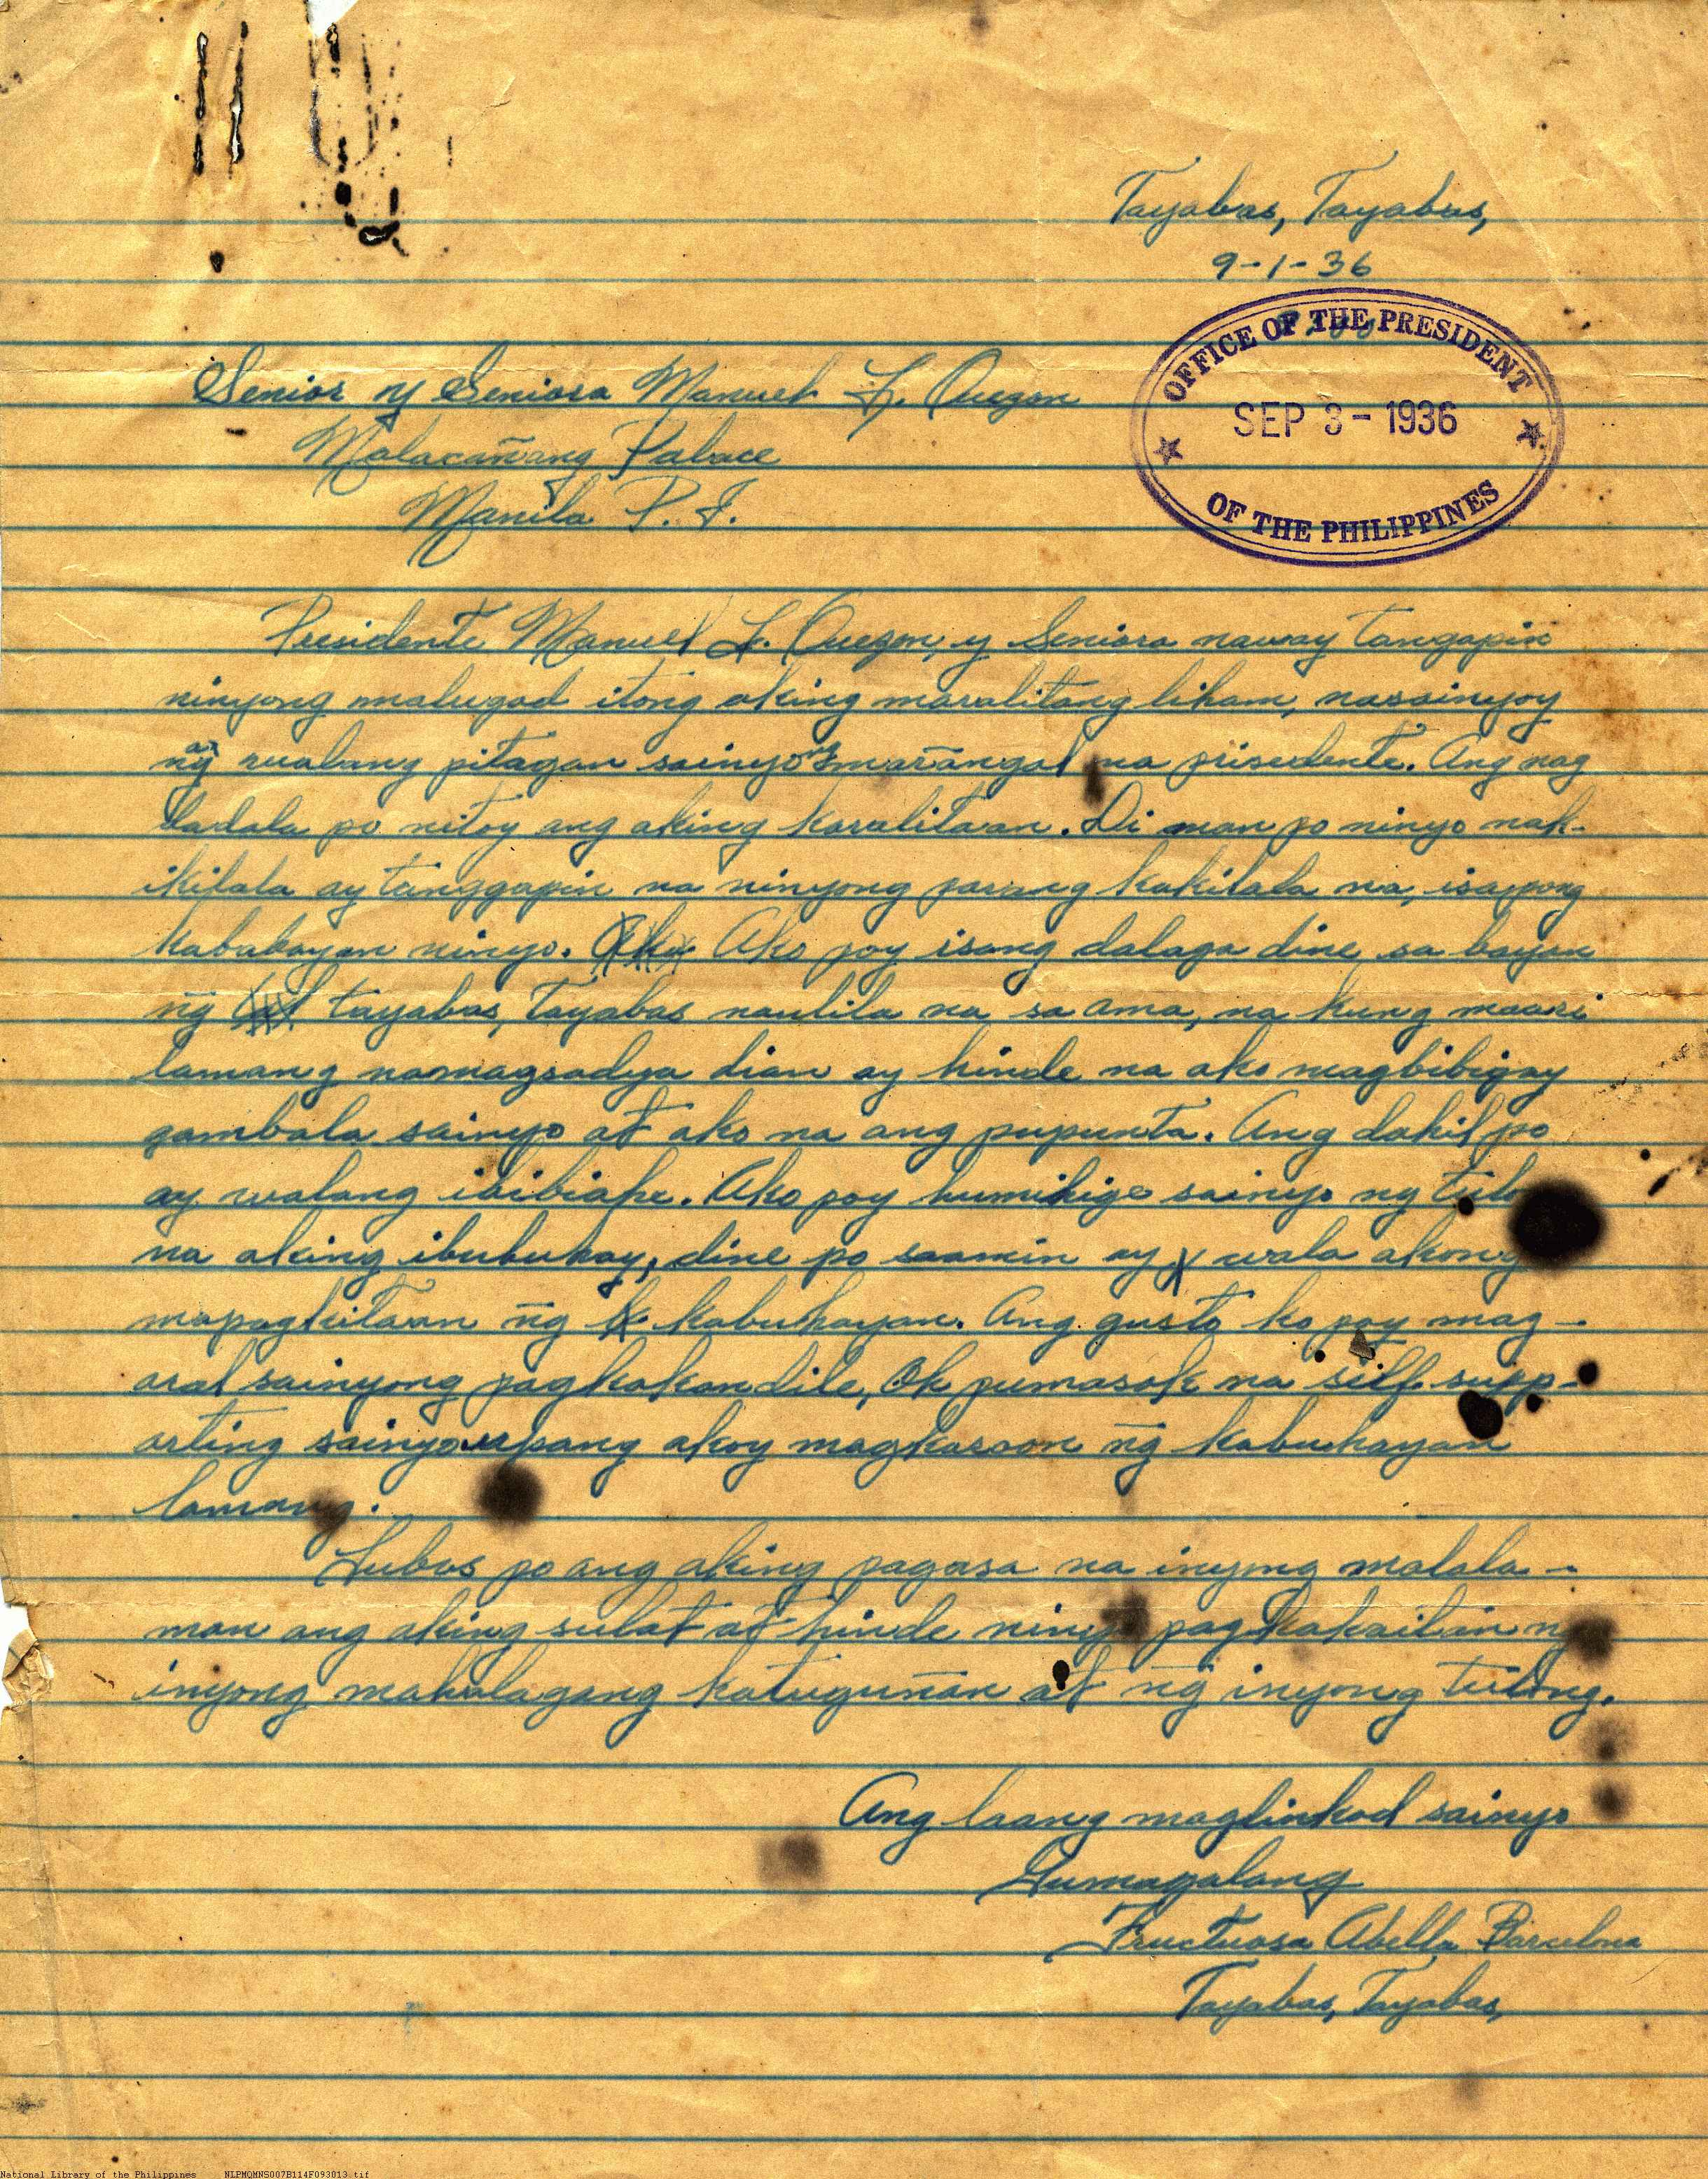 Tayabas, Tayabas,
9-1-36
OFFICE OF THE PRESIDENT
SEP 3 - 1936
OF THE PHILIPPINES
Senior y Seniora Manuel L. Quezon
Malacañang Palace
Manila P. I.
Presidente Manuel L. Quezon, y Seniora naway tangapin
ninyong malugod itong aking maralitang liham, nasainyoy
ang walang pitagan sainyong marangal na prisedente. Ang nag
dadala po nitoy ang aking karalitaan. Di man po ninyo nak-
ikilala ay tanggapin na ninyong parang kakilala na, isa pong
kababayan ninyo. Ako poy isang dalaga dine sa bayan
ng̃ tayabas, Tayabas naulila na sa ama, na kung maari
lamang namagsadya dian ay hinde na ako magbibigay
gambala sainyo at ako na ang pupunta. Ang dahil po
ay walang ibibiahe. Ako poy humihige sainyo ng tulong
na aking ibubuhay, dine po saamin ay wala akong
mapagkitaan ng̃ kabuhayan. Ang gusto ko poy mag-
aral sainyong pagkakandile, Ok pumasok na self supp-
orting sainyo upang akoy magkaroon ng̃ kabuhayan
lamang.
Lubos po ang aking pagasa na inyong malala-
man ang aking sulat at hinde ninyo pagkakaitan ng
inyong mahalagang katuguñan at ng̃ inyong tulong.
Ang laang maglinkod sainyo
Gumagalang
Fructuosa Abella Barcelona
Tayabas, Tayabas,
National Library of the Philippines NLPMQMNS007B114F093013.tif